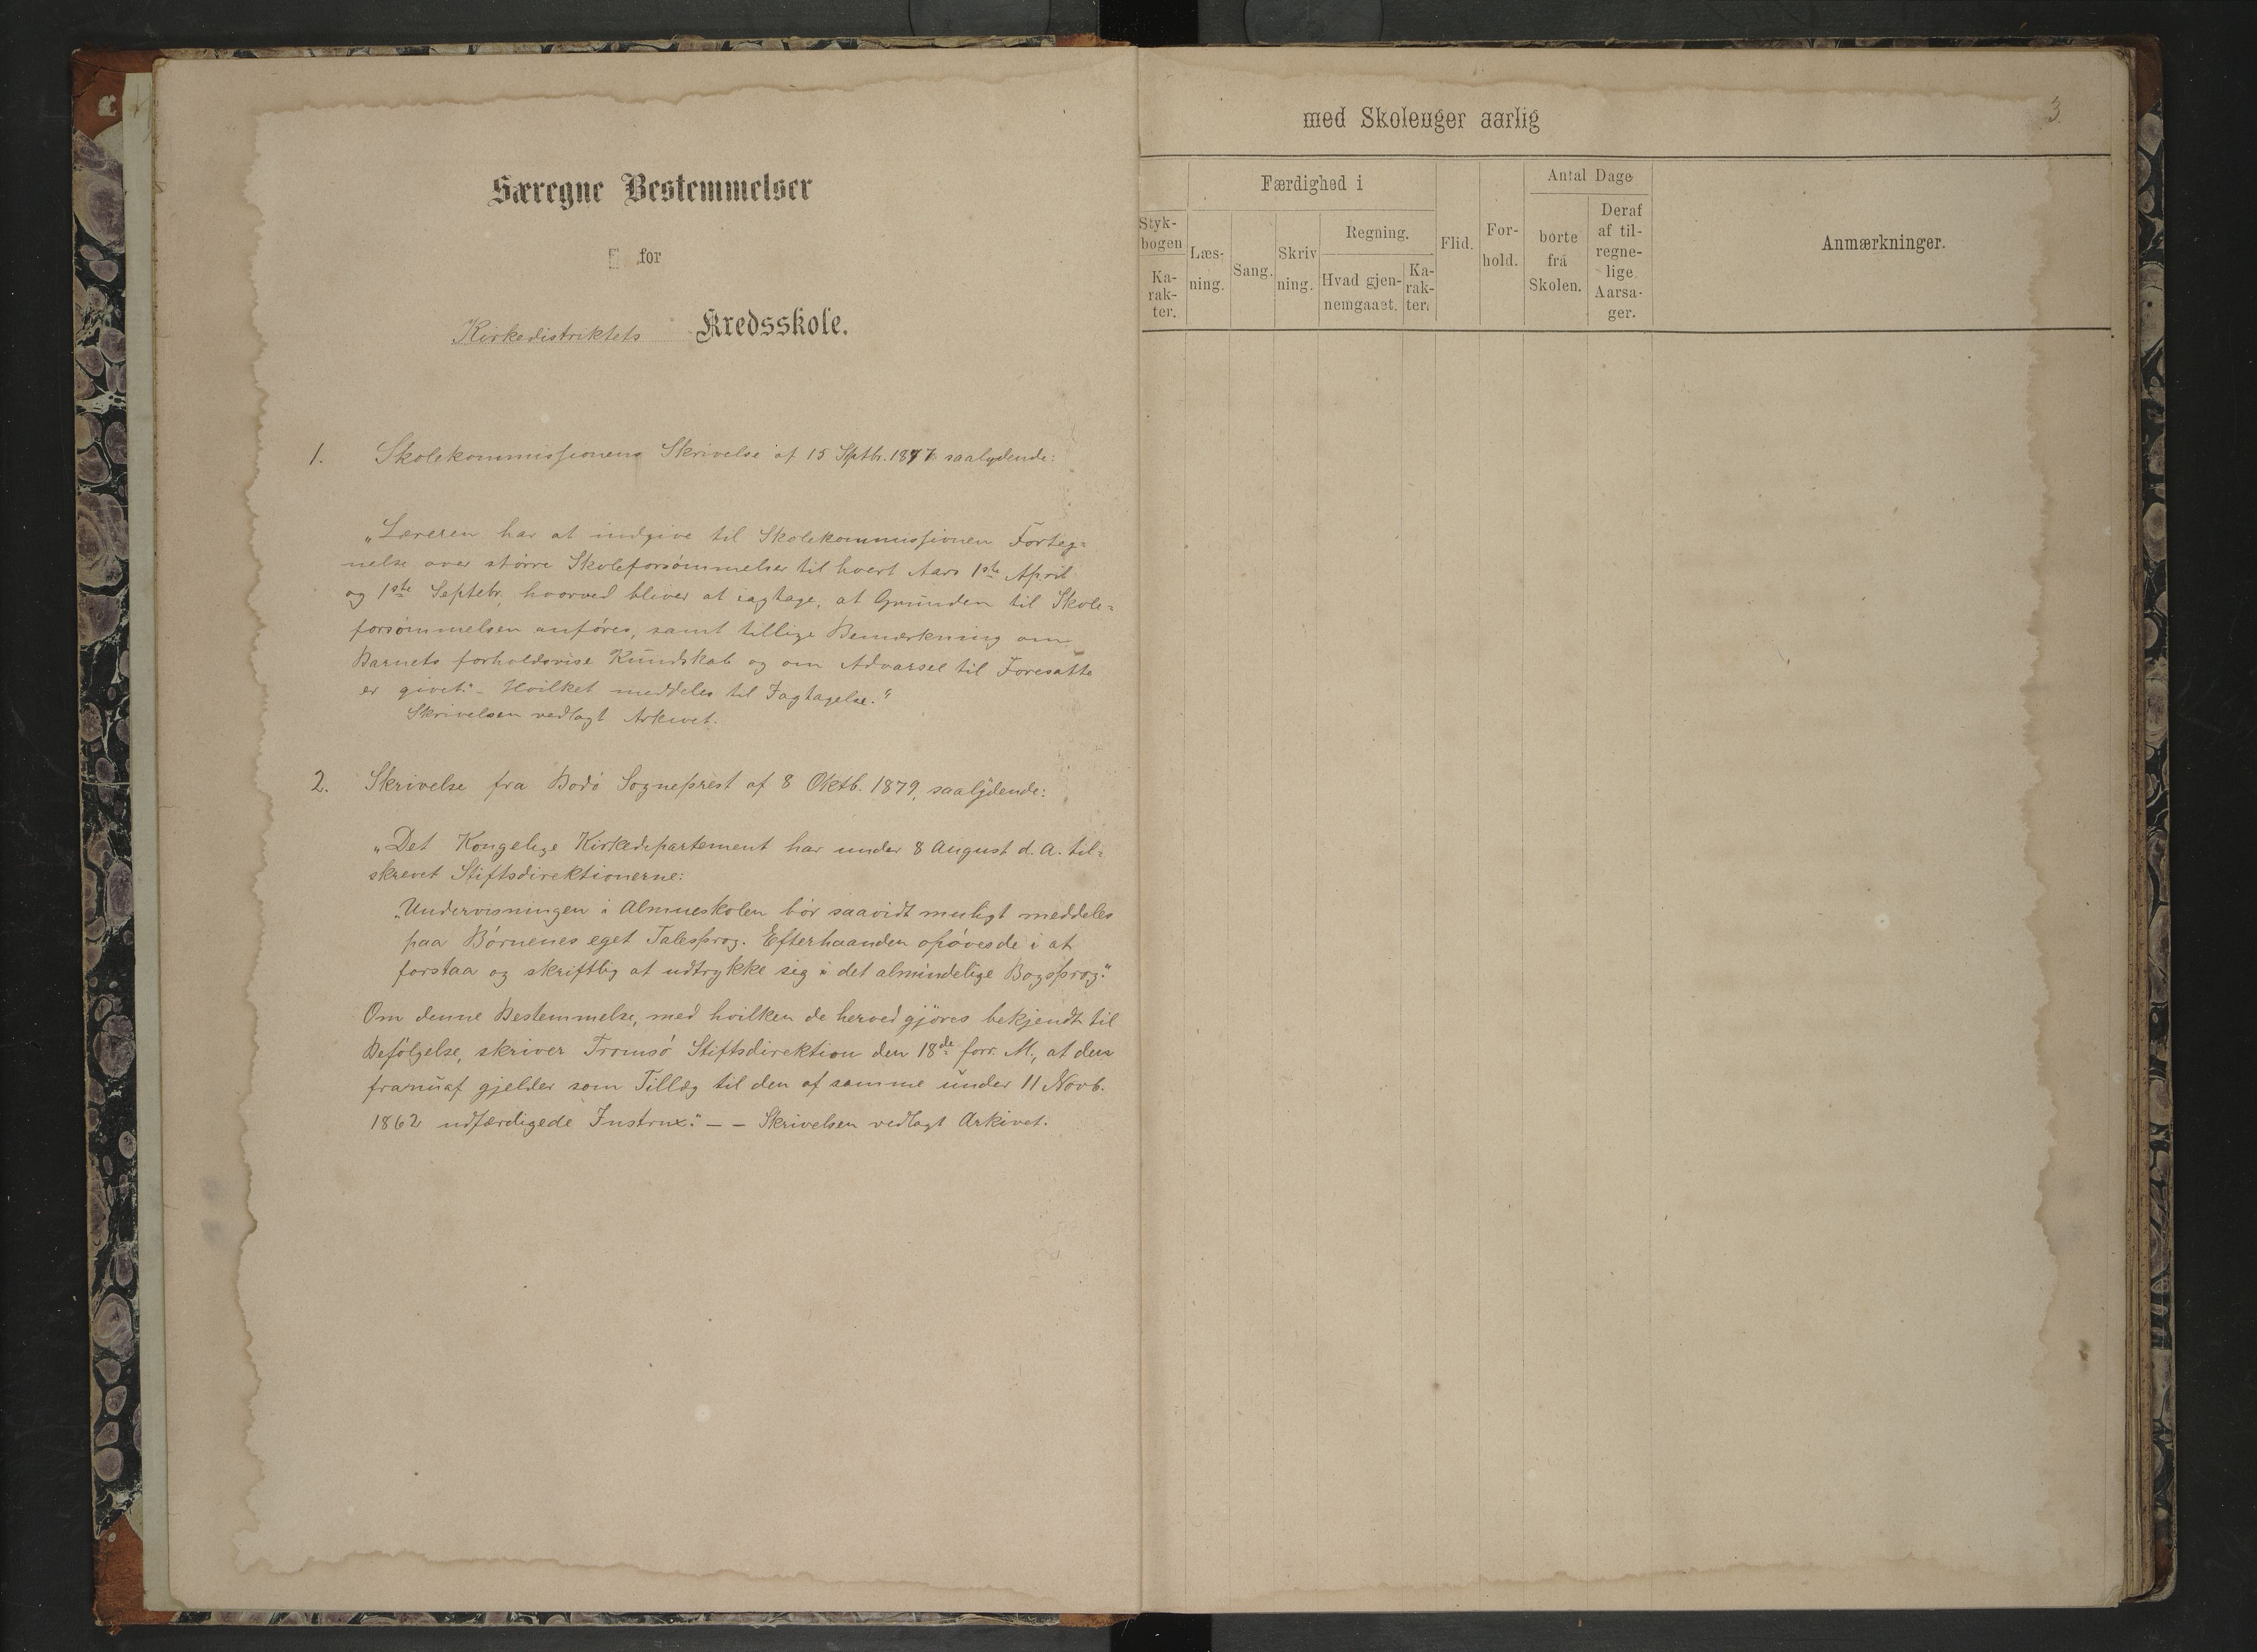 Særegne Bestemmelser
for
Kirkedistriktets Kredsskole.
1. Skolekommissionens Skrivelse af 15 Septbr. 1877 saalydende:
„Læreren har at indgive til Skolekommissionen Forteg=
nelse over större Skoleforsömmelser til hvert Aars 1ste April
og 1ste Septebr, hvorved bliver at iagtage, at Grunden til Skole=
forsömmelsen anföres, samt tillige Bemærkning om
Barnets forholdsvise Kundskab og om Advarsel til Foresatte
er givet. - Hvilket meddeles til Iagtagelse."
Skrivelsen vedlagt Arkivet.
2. Skrivelse fra Bodö Sogneprest af 8 Oktb. 1879, saalydende:
„Det Kongelige Kirkedepartement har under 8 August d. A. til=
skrevet Stiftsdirektionerne:
„Undervisningen i Almueskolen bör saavidt muligt meddeles
paa Börnenes eget Talesprog. Efterhaanden opöves de i at
forstaa og skriftlig at udtrykke sig i det almindelige Bogsprog."
Om denne Bestemmelse, med hvilken de herved gjöres bekjendt til
Befölgelse, skriver Tromsö Stiftsdirektion den 18de forr. M., at den
fra nu af gjelder som Tillæg til den af samme under 11 Novb.
1862 udfærdigede Instrux." — — Skrivelsen vedlagt Arkivet.
3
med Skoleuger aarlig
Færdighed i
Antal Dage
Styk-
bogen
Ka-
rak-
ter.
Læs-
ning.
Sang.
Skriv
ning.
Regning.
Hvad gjen-
nemgaaet.
Ka-
rak-
ter.
Flid.
For-
hold.
borte
fra
Skolen.
Deraf
af til-
regne-
lige
Aarsa-
ger.
Anmærkninger.